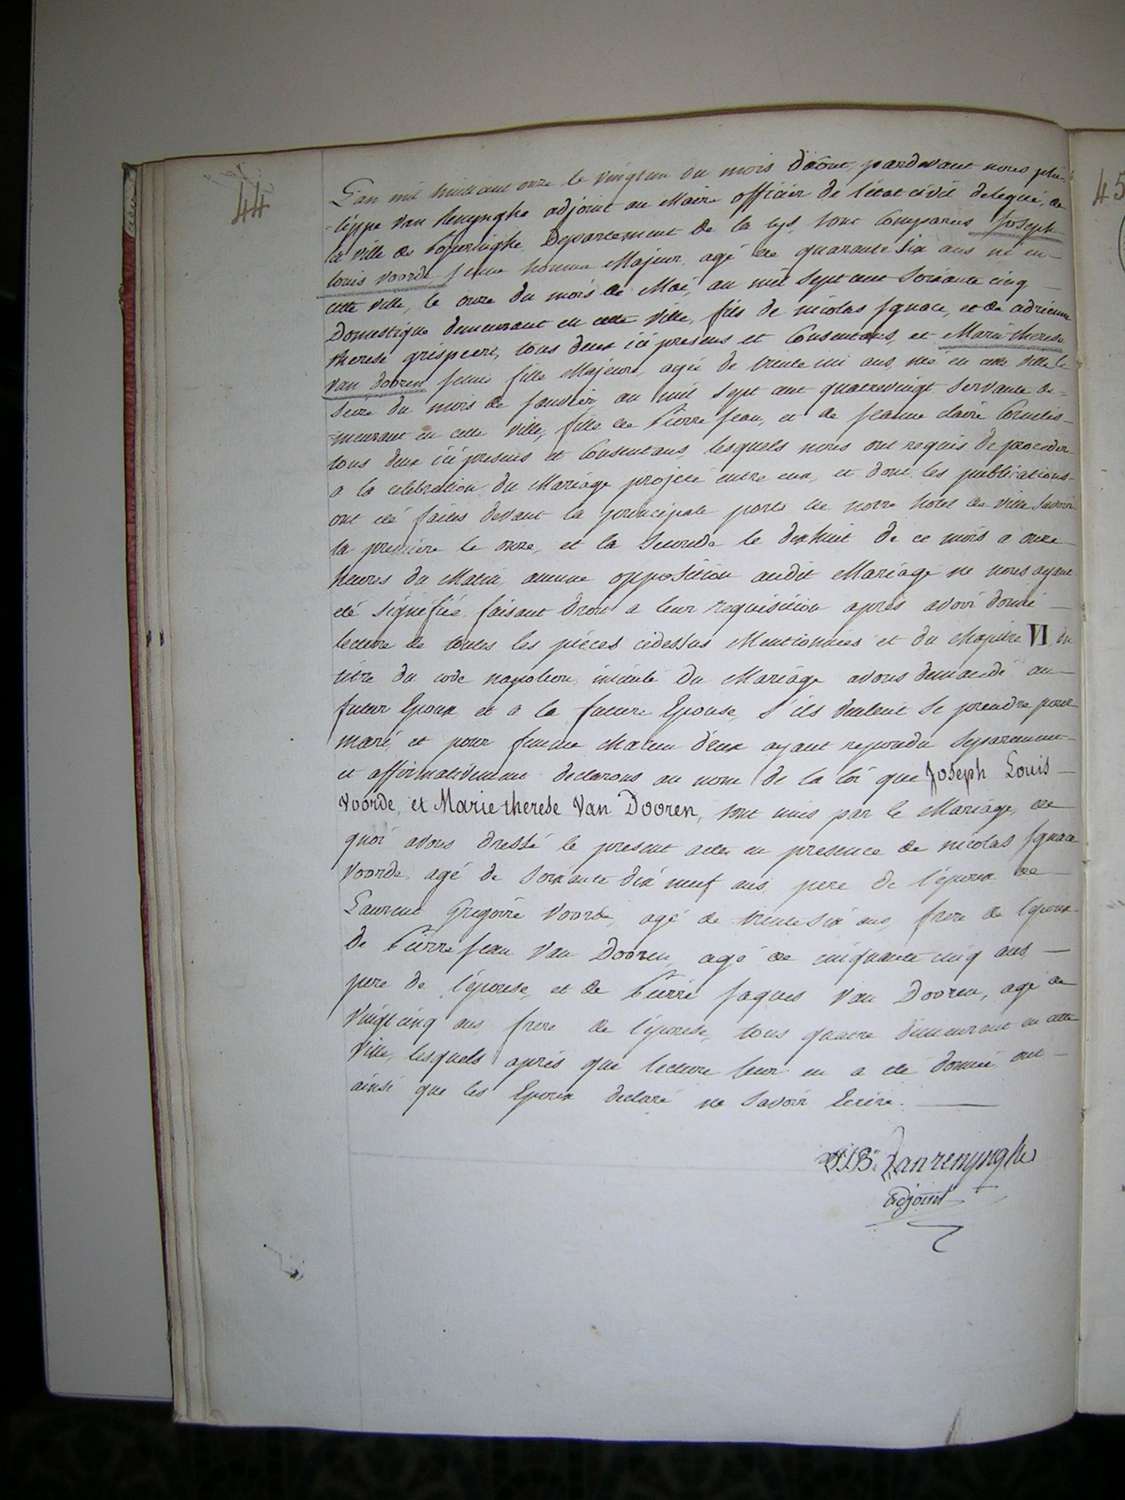 44
L'an mil huit cent onze le vingt un du mois D'août, pardevant nous phi-
-lippe Van Renynghe adjoint au Maire officier de l'état civil delegué, de
la ville de Poperinghe Departement de la Lys, sont Comparus Joseph
Louis Voorde jeune homme Majeur, agé de quarante six ans né en
cette ville, le onze du mois de Mai, an mil sept cent soixante cinq
Domestique demeurant en cette ville, fils de nicolas Ignace, et de adrienne
therese, tous deux ici presens et Consentans, et Marie therese
Van dooren jeune fille Majeure, agée de trente un ans, née en cette ville le
seize du mois de janvier an mil sept cent quatrevingt servante de-
-meurant en cette ville, fille de Pierre jean, et de jeanne claire
tous deux ici presens et Consentans, lesquels nous ont requis de proceder
a la celebration du Mariage projeté entre eux, et dont les publications
ont été faites devant la principale porte de notre hotel de ville savoir
la premiere le onze, et la Seconde le dix huit de ce mois a onze
heures du Matin aucune opposition audit Mariage ne nous ayant
été signifiée faisant Droit a leur requisition après avoir donné
lecture de toutes les pièces cidessus Mentionnées et du chapitre VI du
titre du code napoleon intitulé du Mariage avons demandé au
futur Epoux et a la future Epouse, s'ils veulent se prendre pour
mari, et pour femme chacun d'eux ayant repondu separement
et affirmativement declarons au nom de la loi que Joseph Louis
Voorde, et Marie therese Van Dooren, sont unis par le Mariage, de
quoi avons dressé le present acte en presence de nicolas Ignace
Voorde, agé de soixante dix neuf ans pere de l'époux de
Laurent Gregoire Voorde, agé de trente six ans, frere de l'époux
de Pierre jean Van Dooren, agé de cinquante cinq ans
pere de l'épouse, et de Pierre jaques Van Dooren, agé de
Vingt cinq ans frere de l'épouse, tous quatre demeurant en cette
Ville, lesquels après que lecture leur en a été donnée ont
ainsi que les Epoux declaré ne Savoir Ecrire.
Van renynghe
adjoint
45